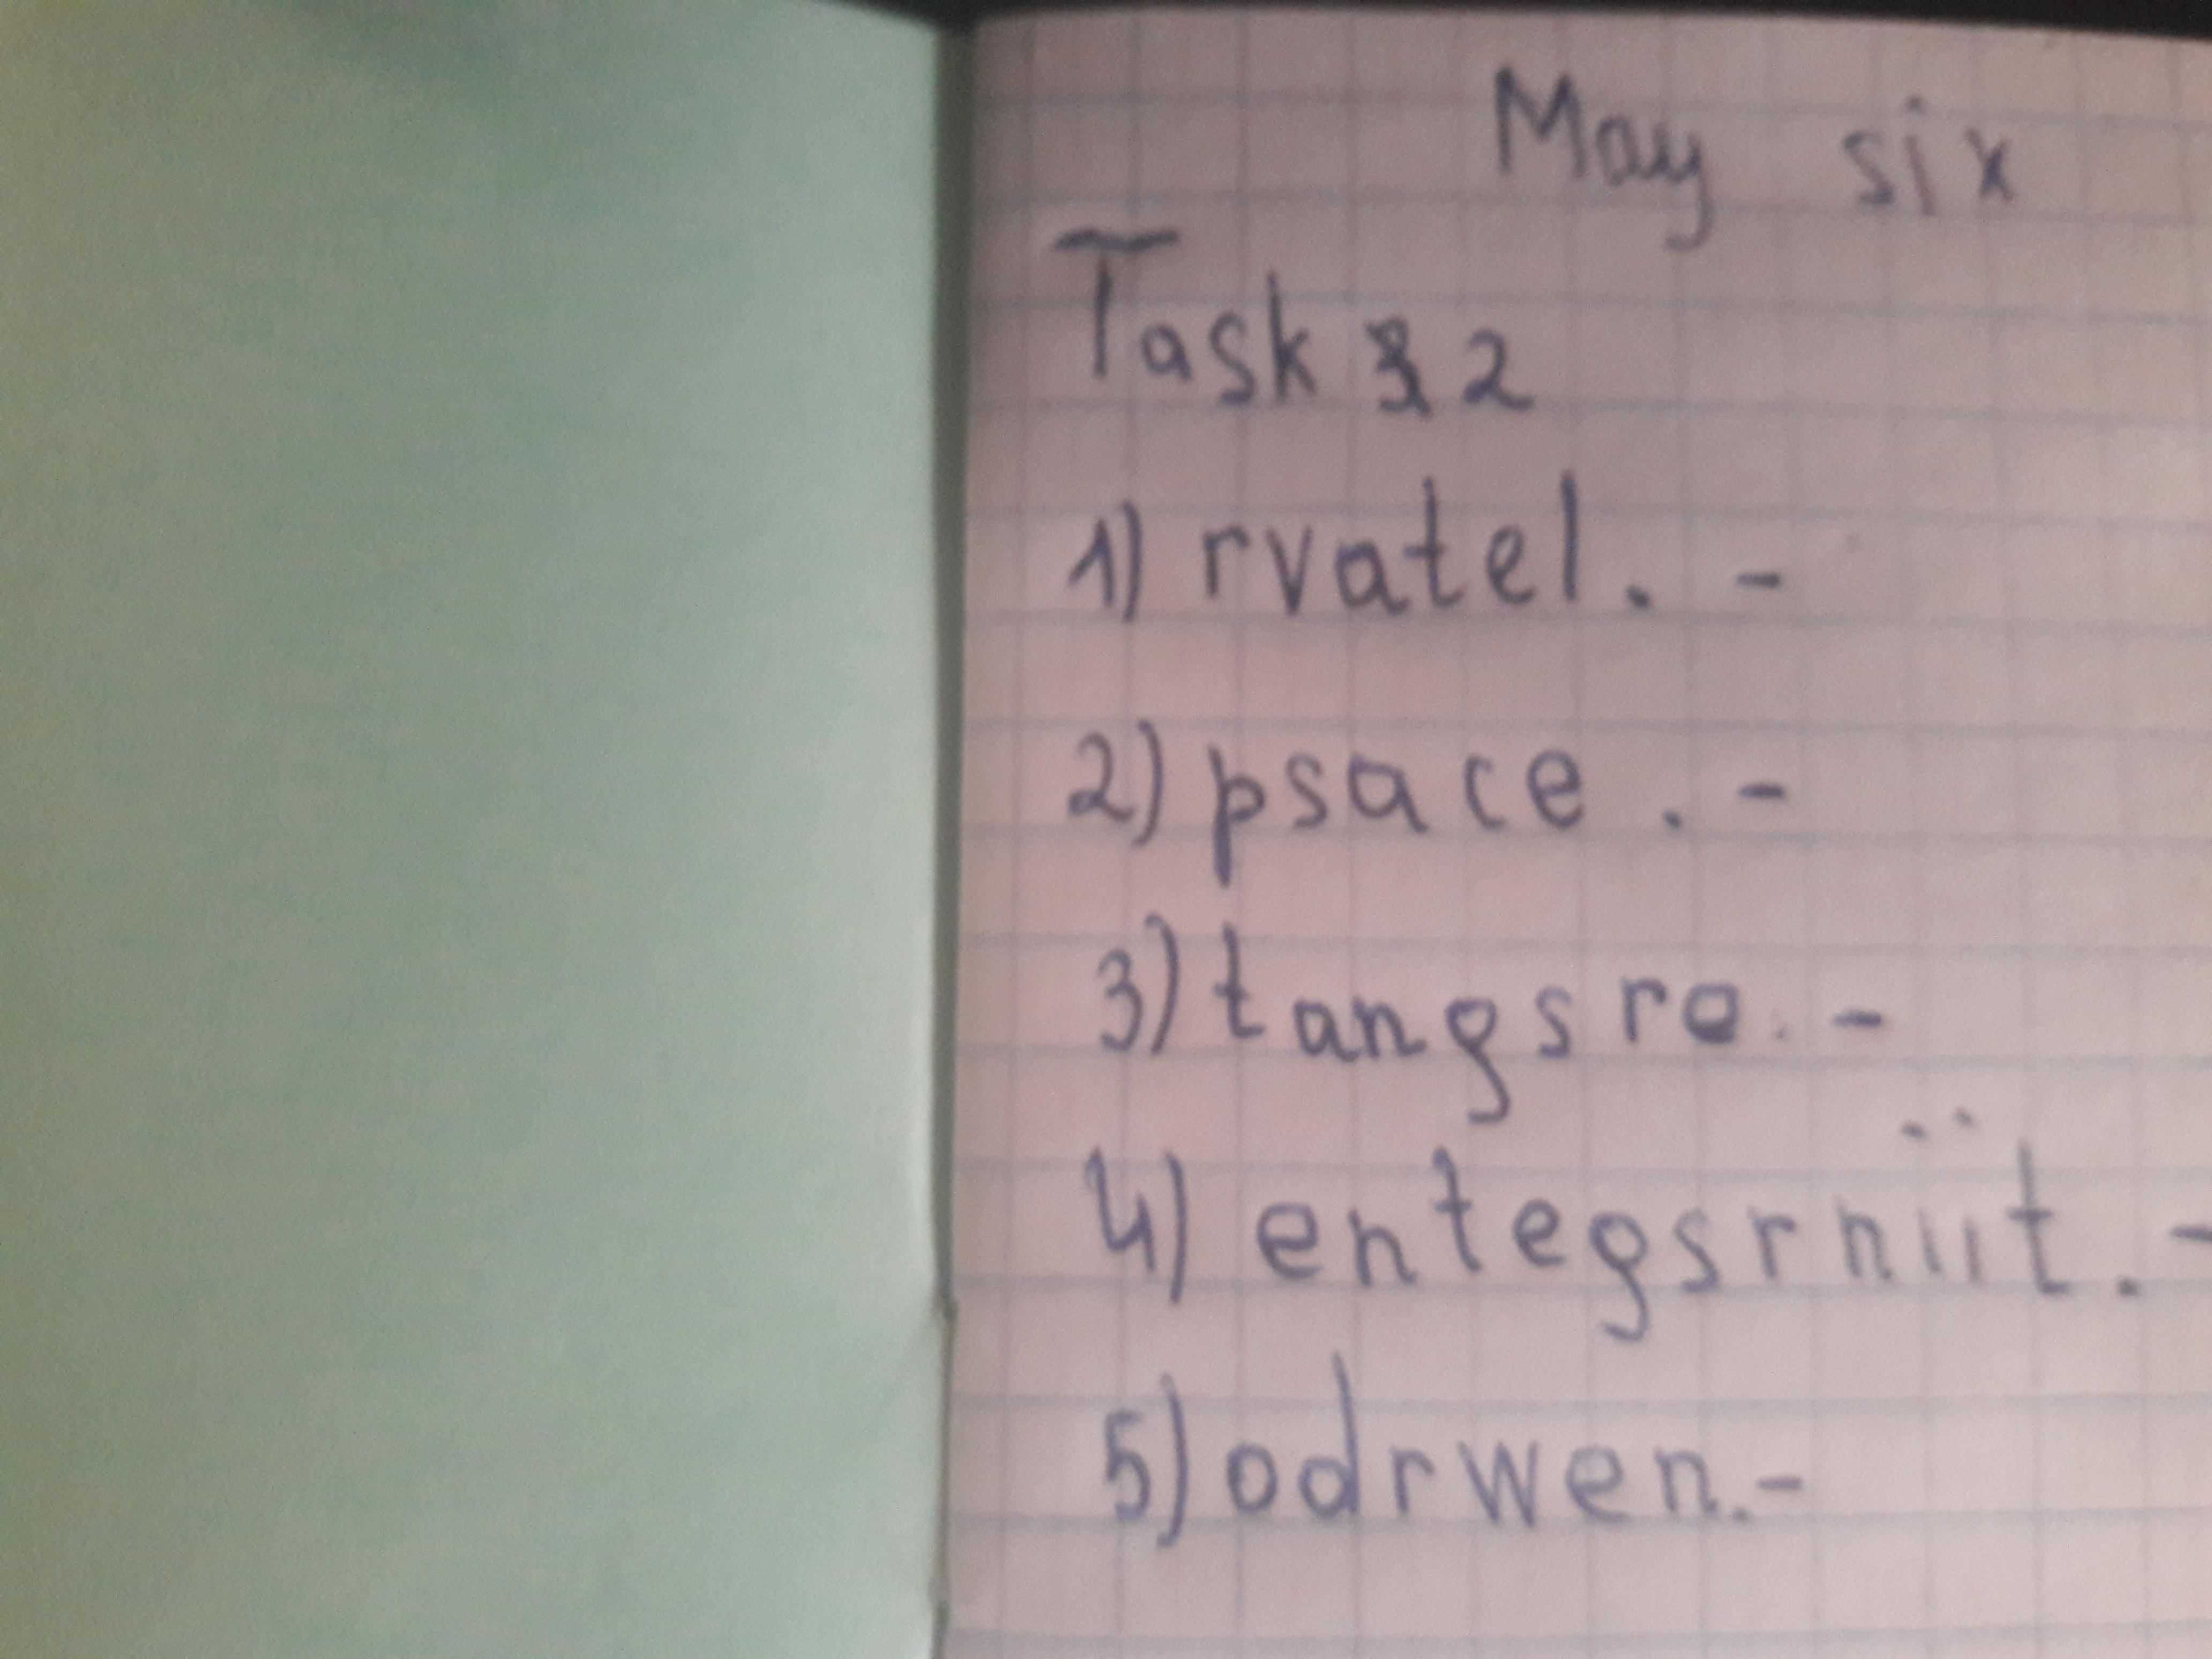 May six
Task 2
1) rvatel. -
2) psace. -
3) tangsre. -
4) entegsrniit. -
5) odrwen.-